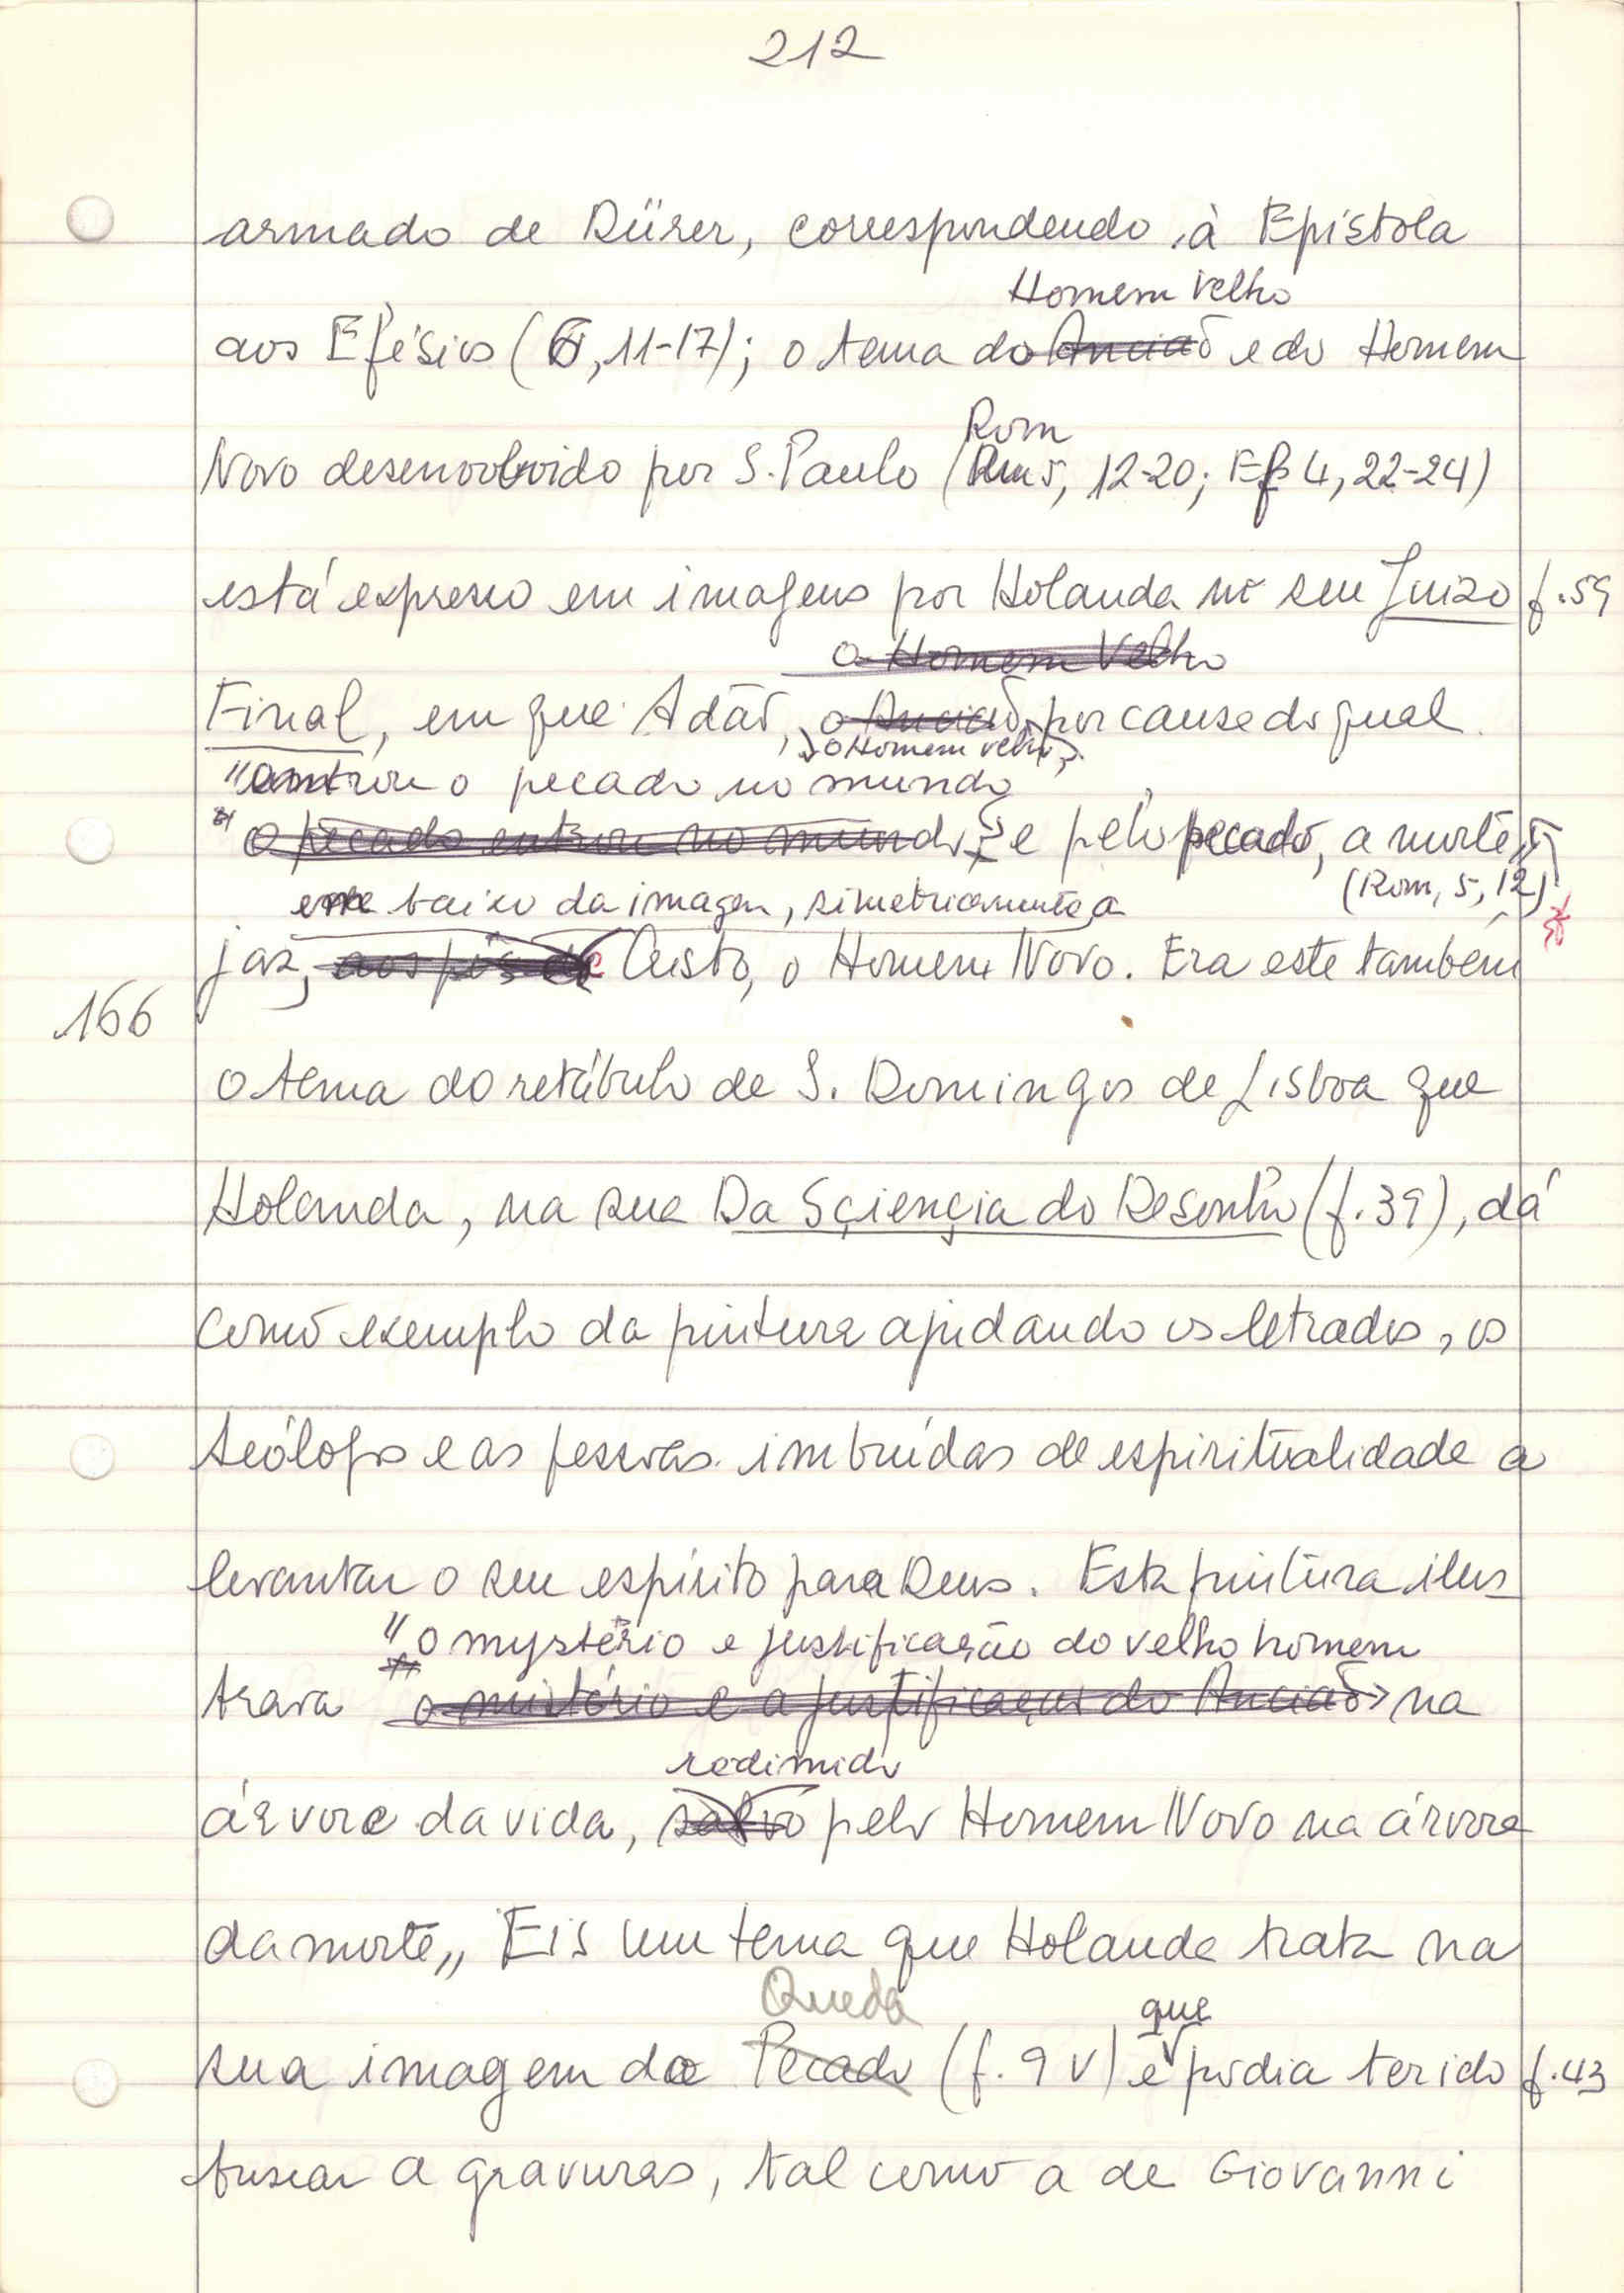 212
armado de Dürer, correspondendo à Epístola
Homem Velho
aos Efésios (6, 11-17); o tema do Ancião e do Homem
Rom
Novo desenvolvido por S. Paulo (Rom 5, 12-20; Ef 4, 22-24)
está expresso em imagens por Holanda no seu Juizo f. 59
o Homem Velho
Final, em que Adão, o Ancião, por causa do qual
, o Homem velho,
"entrou o pecado no mundo
"o pecado entrou no mundo, e pelo pecado, a morte"
(Rom, 5, 12)
em baixo da imagem, simetricamente a
jaz, aos pés de Cristo, o Homem Novo. Era este também
166
o tema do retábulo de S. Domingos de Lisboa que
Holanda, na sua Da Sciença do Desenho (f. 39), dá
como exemplo da pintura ajudando os letrados, os
teólogos e as pessoas imbuídas de espiritualidade a
levantar o seu espírito para Deus. Esta pintura ilus
"o mystério e justificação do velho homem
trava o mistério e a justificação do Ancião na
redimido
árvore da vida, salvo pelo Homem Novo na árvore
da morte,, Eis um tema que Holanda trata na
Queda
que
sua imagem da Pecado (f. 9 v) e podia ter ido f. 43
buscar a gravuras, tal como a de Giovanni